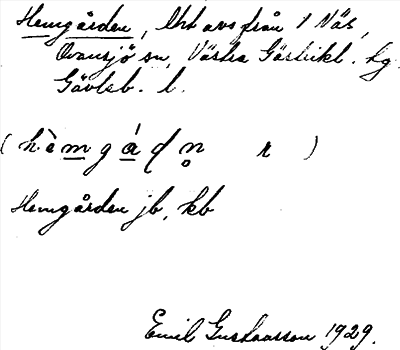 Hemgården, lht avs från 1 Näs,
Ovansjö sn, Västra Gästrikl. hg.
Gävleb. l.
(hèmgádn̥ r)
Hemgården jb, kb
Emil Gustavsson 1929.